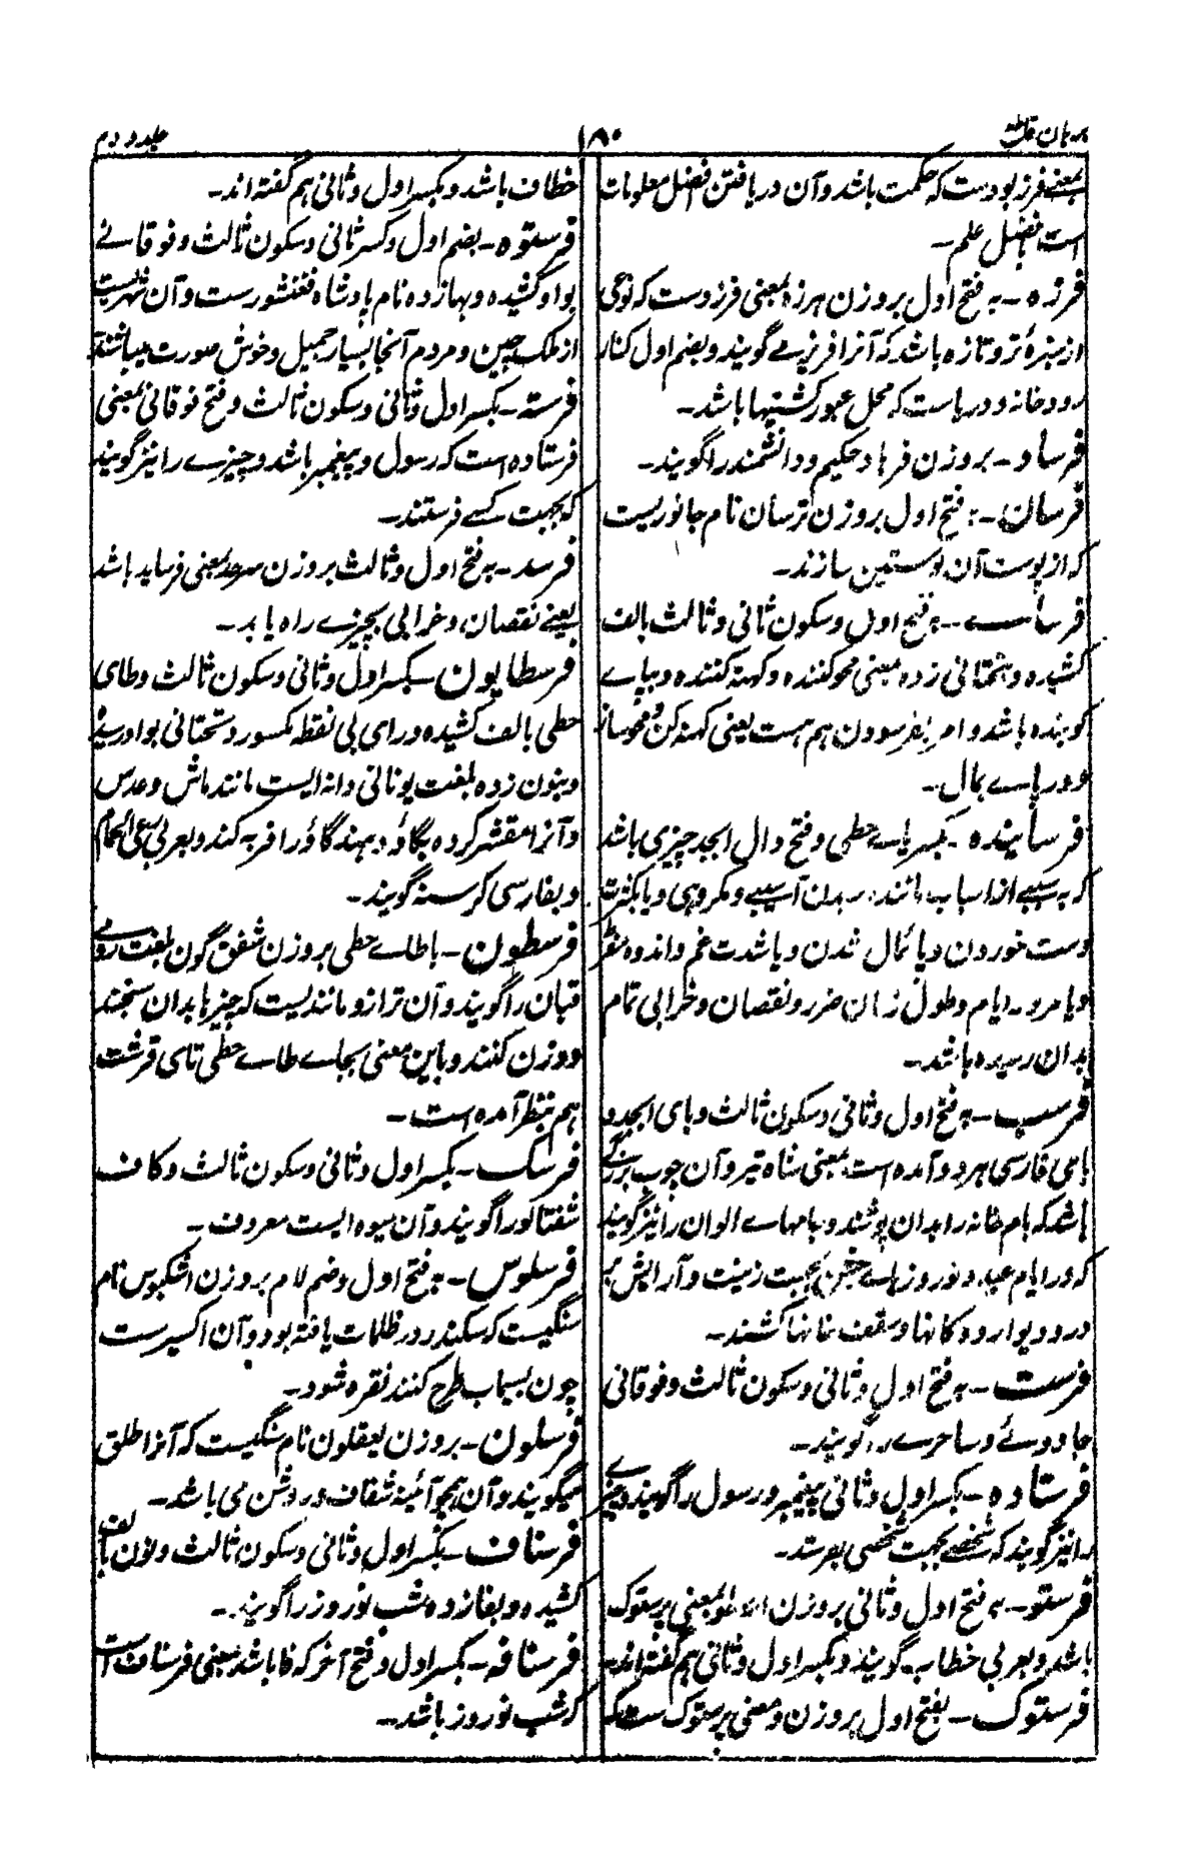 برهان قاطع
۱۸۰
جلد دوم
بمعنے فرزبودست که حکمت باشد و آن دریافتن افضل معلومات
است بافضل علم۔
فرزه ۔ به فتح اول بروزن هرزه بمعنی فرزدست که نوعی
از سبزهٔ تر و تازه باشد که آنرا فریز مے گویند و بضم اول کنار
رودخانه و دریاست که محل عبور کشتیها باشد۔
فرساد ۔ بروزن فرهاد حکیم و دانشمند را گویند۔
فرسان ۔ به فتح اول بروزن ترسان نام جانوریست
که از پوست آن پوستین سازند۔
فرساے ۔ به فتح اول و سکون ثانی و ثالث بالف
کشیده و بتحتانی زده بمعنی محو کننده و کهنه کننده و بپاے
کوبنده باشد و امر بفرسودن هم هست یعنی کهنه کن و محو ساز
و در پاے بمال۔
فرساینده ۔ بکسر یاے حطی و فتح دال ابجد چیزی باشد
که به سببے از اسباب مانند رسیدن آسیبے و مکروهی و یا بکثرت
دست خوردن و پائمال شدن و یا شدت غم و اندوه مفرط
و یا مرور ایام و طول زمان ضرر و نقصان و خرابی تمام
بدان رسیده باشد۔
فرسپ ۔ به فتح اول و ثانی و سکون ثالث و بای ابجد و
بای فارسی هر دو آمده است بمعنی شاه تیر و آن چوب بزرگے
باشد که بام خانه را بدان پوشند و جامهاے الوان را نیز گویند
که در ایام عید و نوروز و جشن بجهت زینت و آرایش بر
در و دیوار دوکانها و سقف خانها کشند۔
فرست ۔ به فتح اول و ثانی و سکون ثالث و فوقانی
جادوئے و ساحرے را گویند۔
فرستاده ۔ بکسر اول و ثانی پیغمبر و رسول را گویند و چیزے
را نیز گویند که شخصے بجهت شخصی بفرستد۔
فرستو ۔ به فتح اول و ثانی بروزن بمعنی پرستوک
باشد و بعربی خطاف گویند و بکسر اول و ثانی هم گفته اند۔
فرستوک ۔ بفتح اول بروزن و معنی پرستوک ست که
خطاف باشد و بکسر اول و ثانی هم گفته اند۔
فرستوه ۔ بضم اول و کسر ثانی و سکون ثالث و فوقانے
بواو کشیده و بهازده نام پادشاه فغنشورست و آن شهریست
از ملک چین و مردم آنجا بسیار جمیل و خوش صورت میباشند
فرسته ۔ بکسر اول و ثانی و سکون ثالث و فتح فوقانی بمعنی
فرستاده است که رسول و پیغمبر باشد و چیزے را نیز گویند
که بجهت کسے فرستند۔
فرسد ۔ به فتح اول و ثالث بروزن سرحد بمعنی فرساید باشد
یعنے نقصان و خرابی بچیزے راه یابد۔
فرسطایون ۔ بکسر اول و ثانی و سکون ثالث و طای
حطی بالف کشیده و رای بی نقطه مکسور و تحتانی بواو رسیده
و بنون زده بلغت یونانی دانه ایست مانند ماش و عدس
و آنرا مقشر کرده بگاؤ دهند گاؤ را فربه کند و بعربی رعی الحمام
و بفارسی کرسنه گویند۔
فرسطون ۔ با طاے حطی بروزن شفق گون بلغت رومے
قپان را گویند و آن ترازو مانندیست که چیزها بدان سنجند
و وزن کنند و باین معنی بجاے طاے حطی تای قرشت
هم بنظر آمده است۔
فرسک ۔ بکسر اول و ثانی و سکون ثالث و کاف
شفتالو را گویند و آن میوه ایست معروف۔
فرسلوس ۔ به فتح اول و ضم لام بروزن اشکبوس نام
سنگیست که سکندر در ظلمات یافته بود و آن اکسیرست
چون بسیماب طرح کنند نقره شود۔
فرسلون ۔ بروزن یعقلون نام سنگیست که آنرا طلق
میگویند و آن همچو آئینه شفاف و روشن می باشد۔
فرسناف ۔ بکسر اول و ثانی و سکون ثالث و نون بالف
کشیده و بفا زده شب نوروز را گویند۔
فرسنافه ۔ بکسر اول و فتح آخر که فا باشد بمعنی فرسناف است
که شب نوروز باشد۔